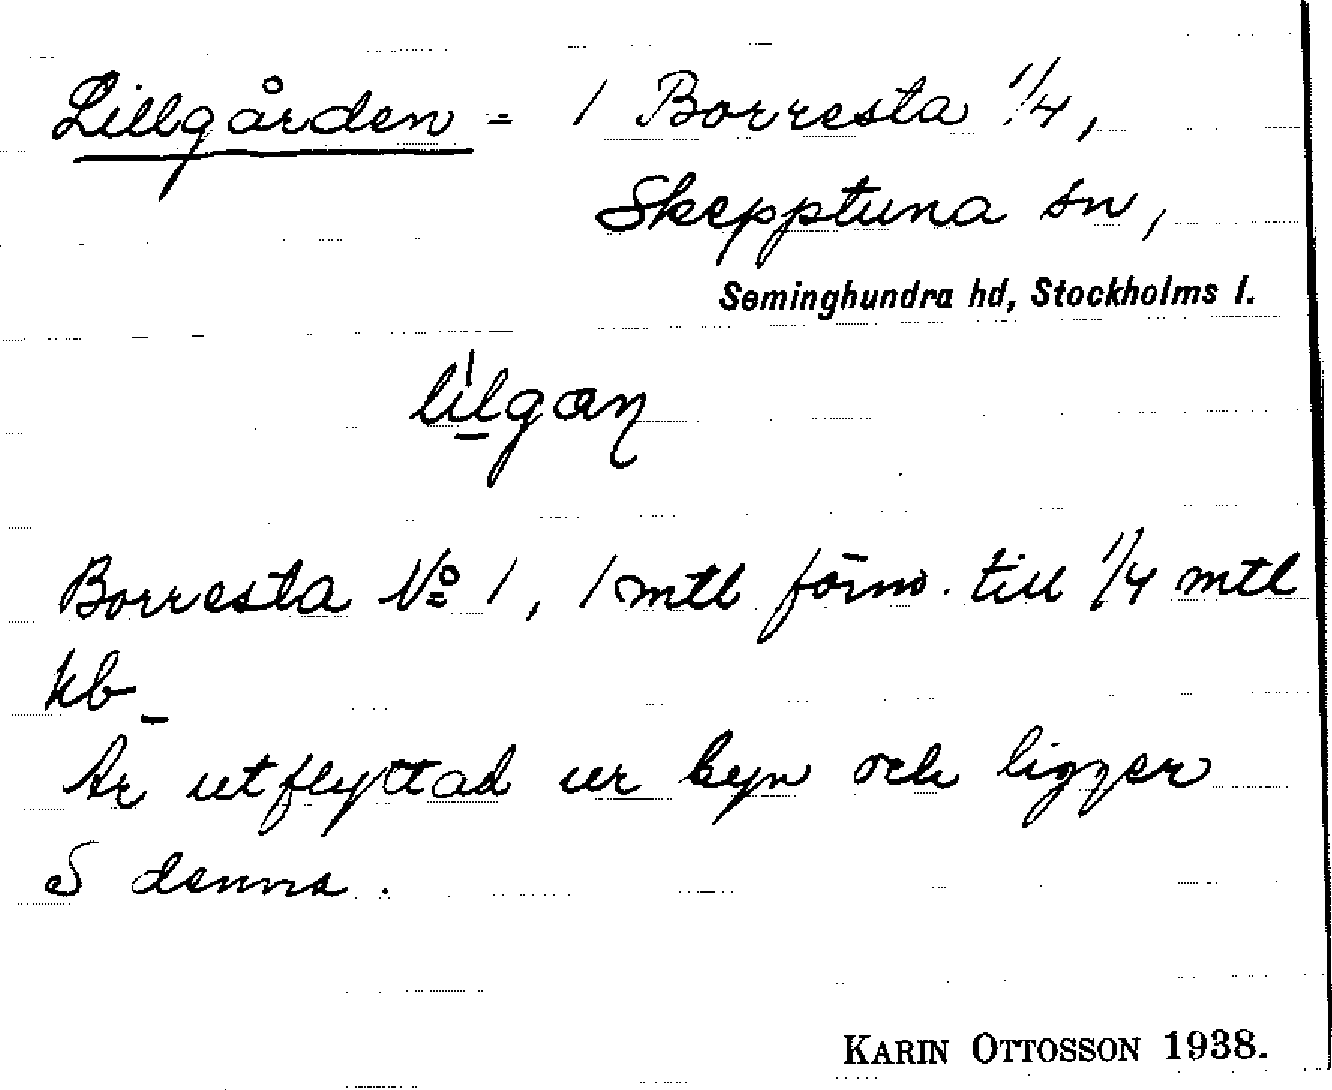 Lillgården = 1 Borresta 1/4,
Skepptuna sn,
Seminghundra hd, Stockholms l.
Borresta No 1, 1 mtl förm. till 1/4 mtl
kb
Är utflyttad ur byn och ligger
S denna.
KARIN OTTOSSON 1938.